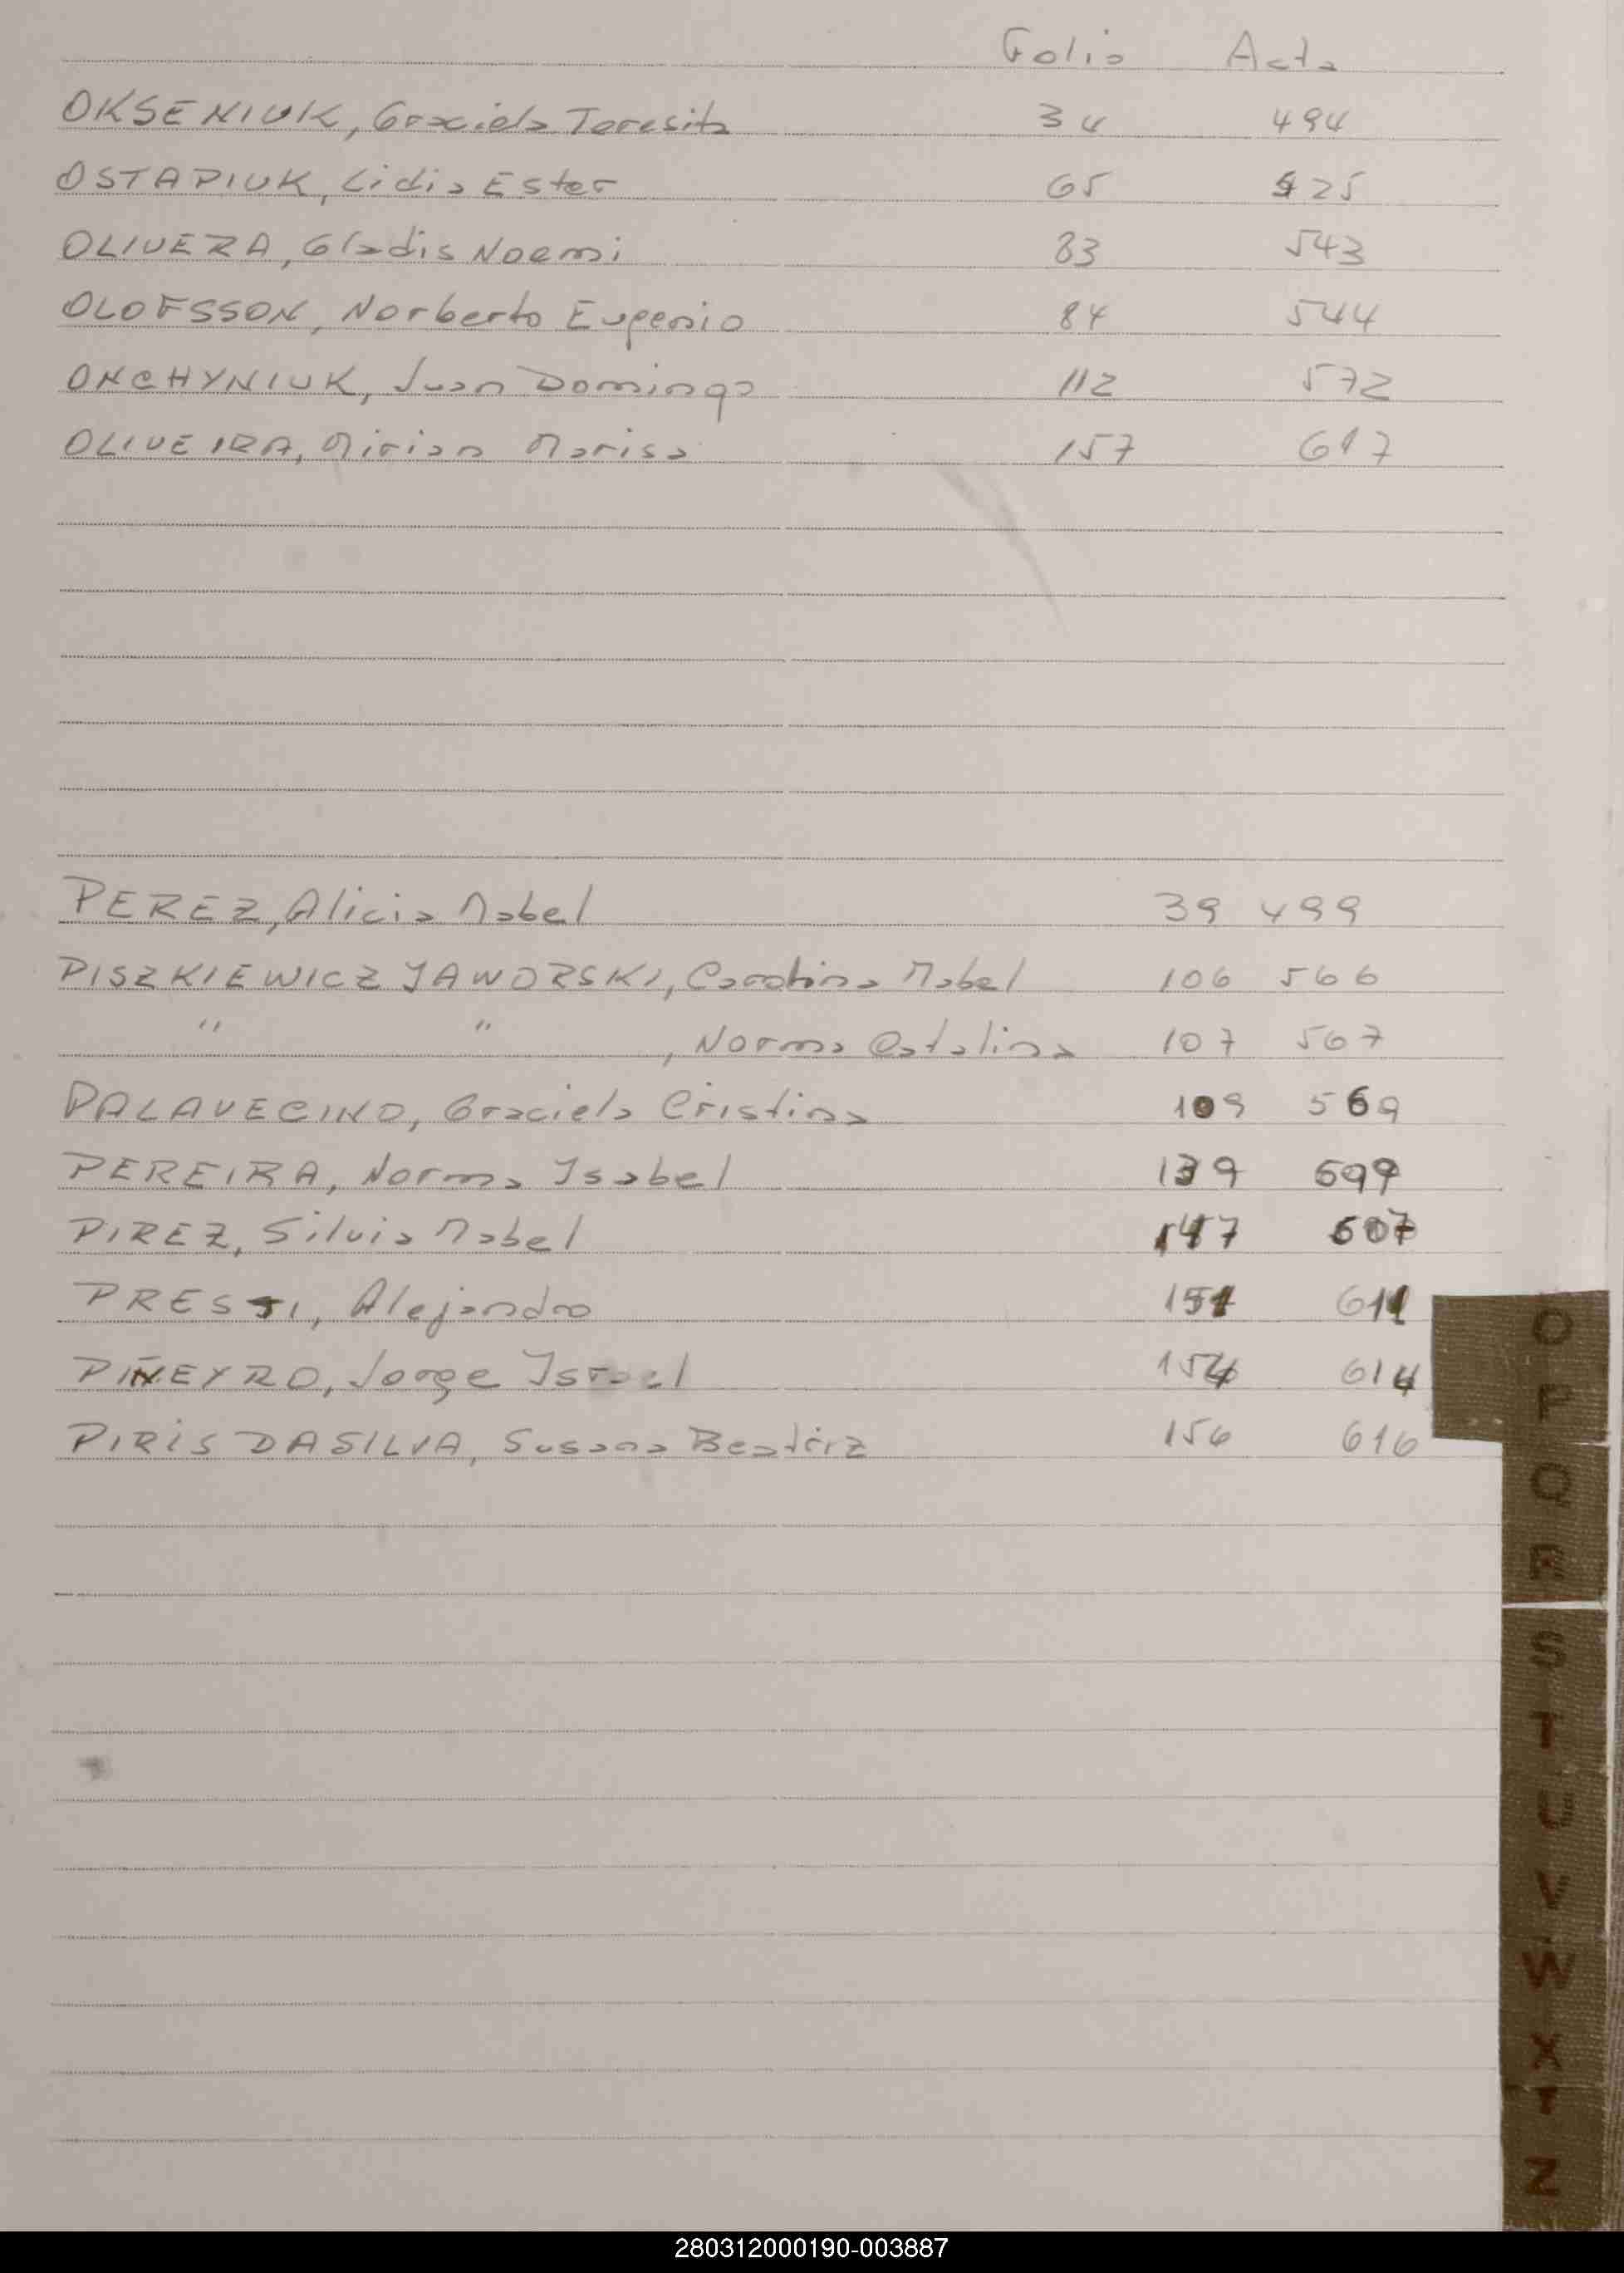 Folio Acta
OKSENIUK, Graciela Teresita 34 494
OSTAPIUK, Lidia Ester 65 525
OLIVERA, Gladis Noemi 83 543
OLOFSSON, Norberto Eugenio 84 544
ONCHYNIUK, Juan Domingo 112 572
OLIVEIRA, Mirian Marisa 157 617
PEREZ, Alicia Mabel 39 499
PISZKIEWICZ JAWORSKI, Carolina Mabel 106 566
" " , Norma Catalina 107 567
PALAVECINO, Graciela Cristina 109 569
PEREIRA, Norma Isabel 139 599
PIREZ, Silvia Mabel 147 607
PRESTI, Alejandro 151 611
PIÑEYRO, Jorge Israel 154 614
PIRIS DASILVA, Susana Beatriz 156 616
O
P
Q
R
S
T
U
V
W
X
Y
Z
280312000190-003887